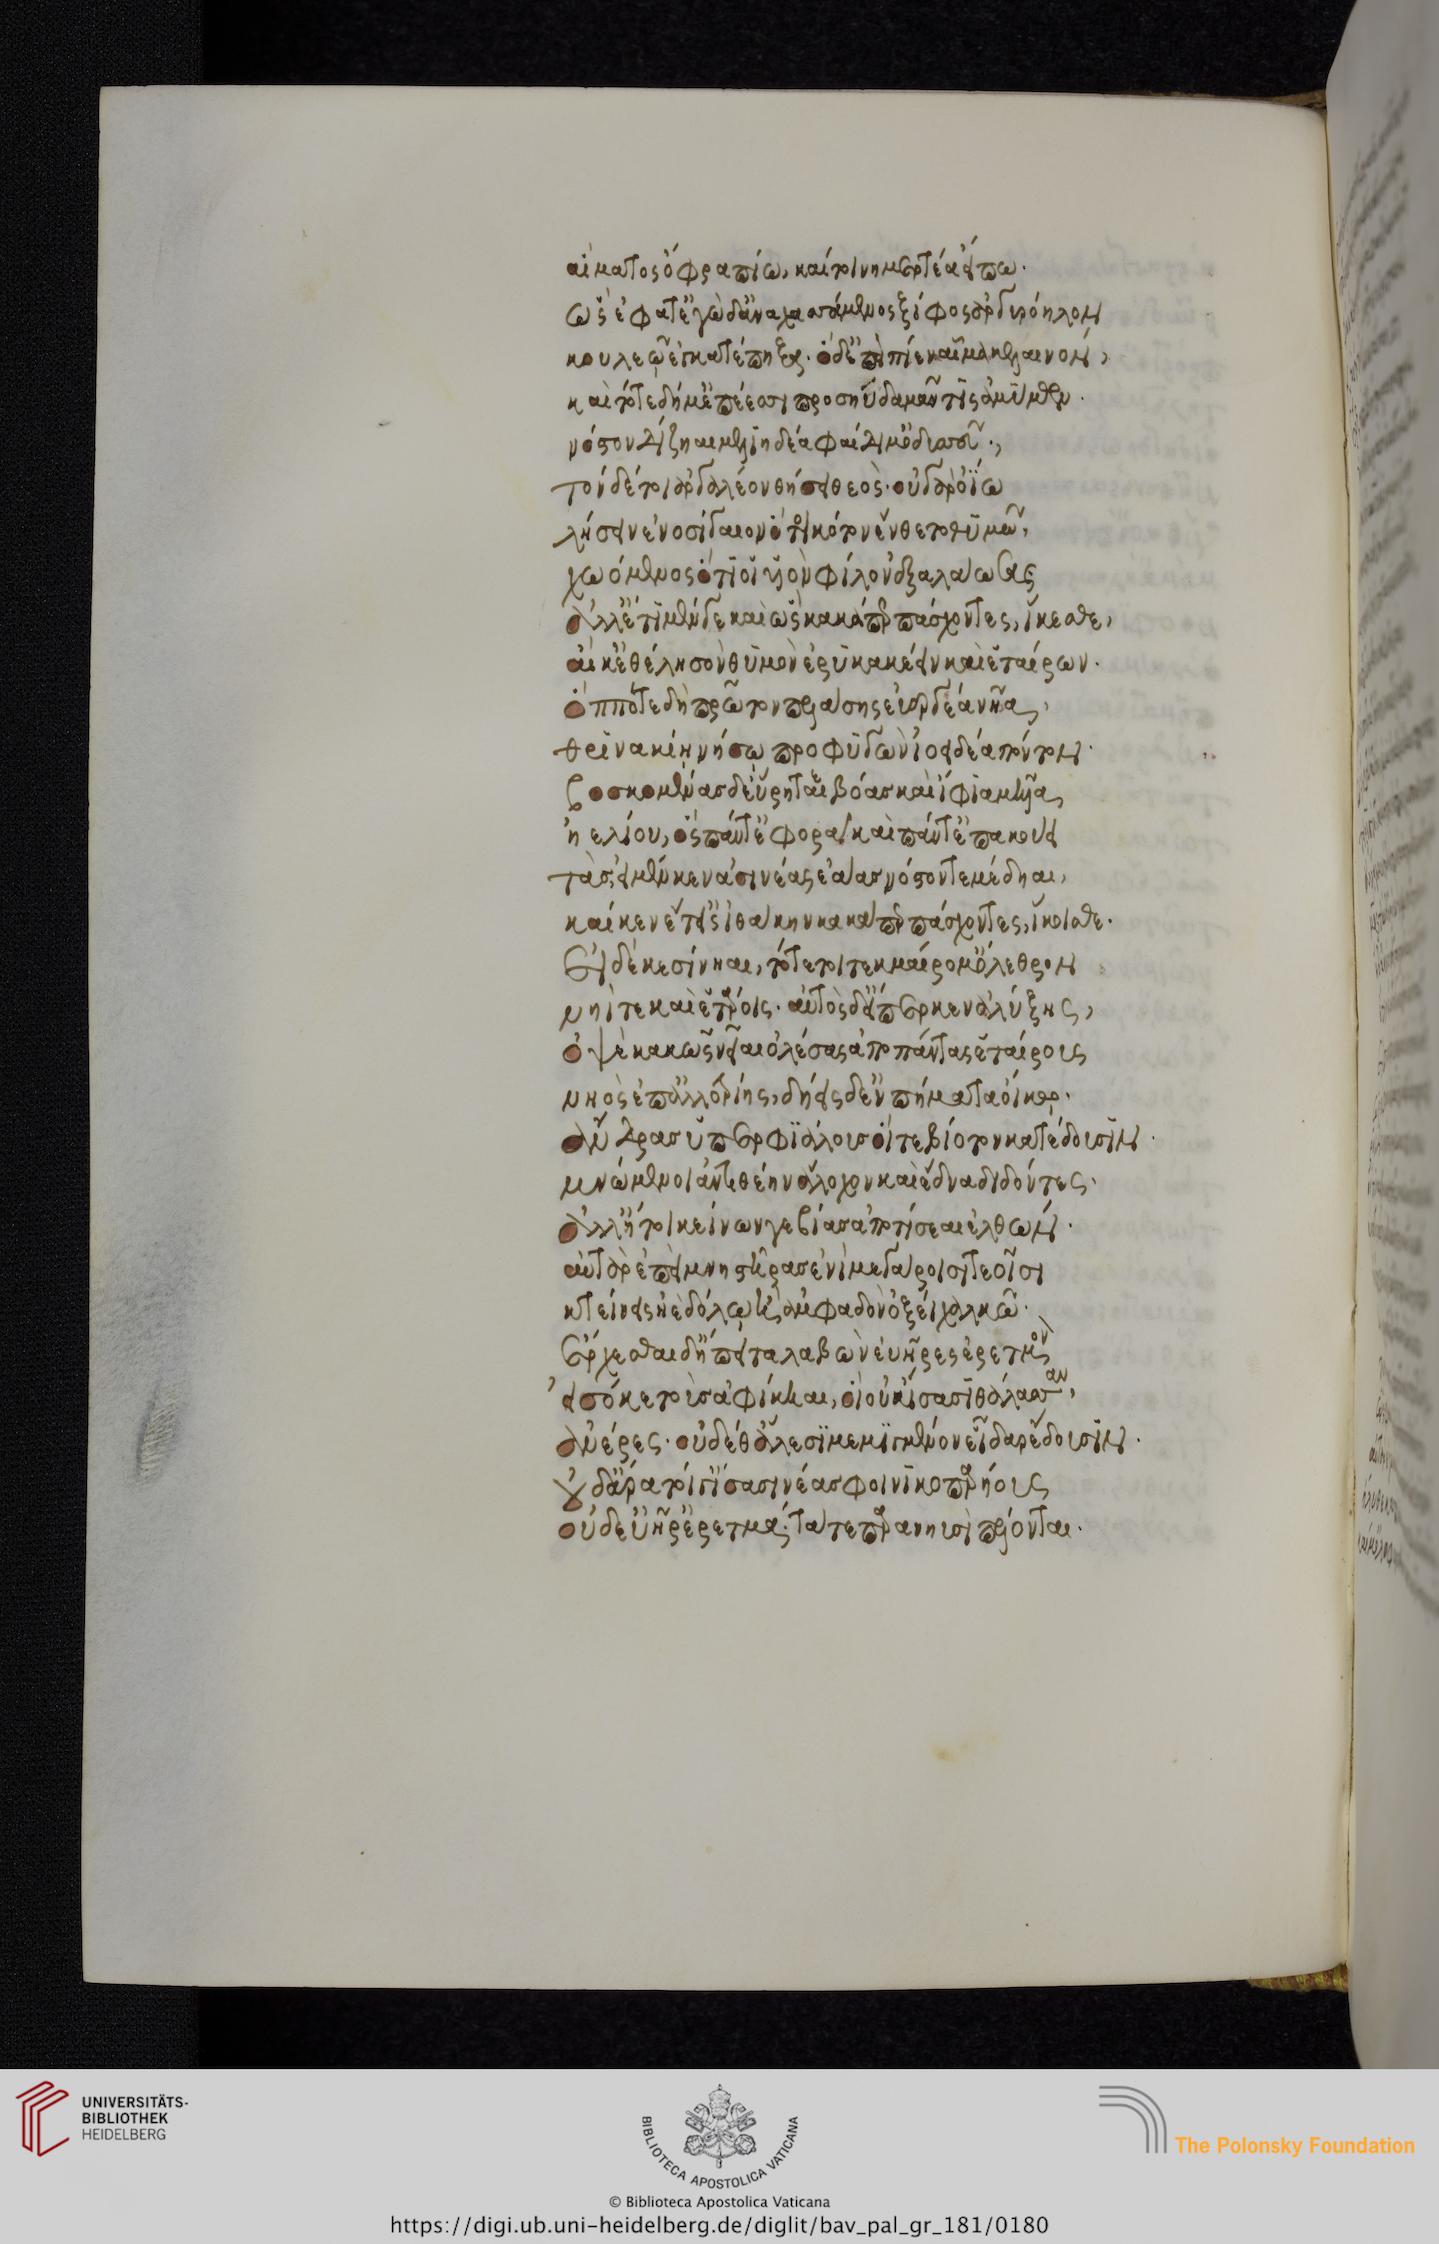 αἵματος ὄφρα πίω, καί τοι νημερτέα εἴπω.
ὣς ἔφατ' ἐγὼ δ' ἀναχασσάμενος ξίφος ἀργυρόηλον
κουλεῷ ἐγκατέπηξ'. ὁ δ' ἐπεὶ πίεν αἷμα κελαινόν,
καὶ τότε δή μ' ἐπέεσσι προσηύδα μάντις ἀμύμων
νόστον δίζηαι μελιηδέα φαίδιμ' ὀδυσσεῦ.,
τὸν δέ τοι ἀργαλέον θήσει θεός. οὐ γὰρ ὀΐω
λήσειν ἐνοσίγαιον ὅ τοι κότον ἔνθετο θυμῷ,
χωόμενος ὅτι οἱ υἱὸν φίλον ἐξαλάωσας
ἀλλ' ἔτι μέν γε καὶ ὣς κακά περ πάσχοντες, ἵκεσθε,
αἴ κ' ἐθέλῃ σὸν θυμὸν ἐρυκακέειν καὶ ἑταίρων.
ὁππότε δὴ πρῶτον πελάσῃς εὐεργέα νῆα,
θρινακίῃ νήσῳ προφυγὼν ἰοειδέα πόντον.
βοσκομένας δ' εὕρηται βόας καὶ ἴφια μῆλα,
ἠελίου, ὃς πάντ' ἐφορᾷ καὶ πάντ' ἐπακούει
τὰς εἰ μέν κεν ἀσινέας ἐάας νόστου τε μέδηαι,
καί κεν ἔτ' εἰς ἰθάκην κακά περ πάσχοντες, ἵκοισθε.
εἰ δέ κε σίνηαι, τότε τοι τεκμαίρομ' ὄλεθρον
νηΐ τε καὶ ἑτάροις. αὐτὸς δ' εἴπερ κεν ἀλύξῃς,
ὀψὲ κακῶς νεῖαι ὀλέσας ἄπο πάντας ἑταίρους
νηὸς ἐπ' ἀλλοτρίης, δήεις δ' ἐν πήματα οἴκῳ.
ἄνδρας ὑπερφιάλους οἵ τε βίοτον κατέδουσιν.
μνώμενοι ἀντιθέην ἄλοχον καὶ ἕδνα διδόντες.
ἀλλ' ἤτοι κείνων γε βίας ἀποτίσεαι ἐλθών.
αὐτὰρ ἐπὴν μνηστῆρας ἐνὶ μεγάροισι τεοῖσι
κτείνεις ἠὲ δόλῳ ἢ ἀμφαδὸν ὀξέι χαλκῷ.
ἔρχεσθαι δὴ ἔπειτα λαβὼν εὐῆρες ἐρετμόν
εἰσόκε τοὺς ἀφίκηαι, οἳ οὐκ ἴσασι θάλασσαν,
ἀνέρες. οὐδέ θ' ἅλεσι μεμιγμένον εἶδαρ ἔδουσιν.
οὐδ' ἄρα τοί γ' ἴσασι νέας φοινικοπαρῄους
οὐδ' εὐῆρε' ἐρετμά, τά τε πτερὰ νηυσὶ πέλονται.
UNIVERSITÄTS-
BIBLIOTHEK
HEIDELBERG
BIBLIOTECA APOSTOLICA VATICANA
The Polonsky Foundation
© Biblioteca Apostolica Vaticana
https://digi.ub.uni-heidelberg.de/diglit/bav_pal_gr_181/0180